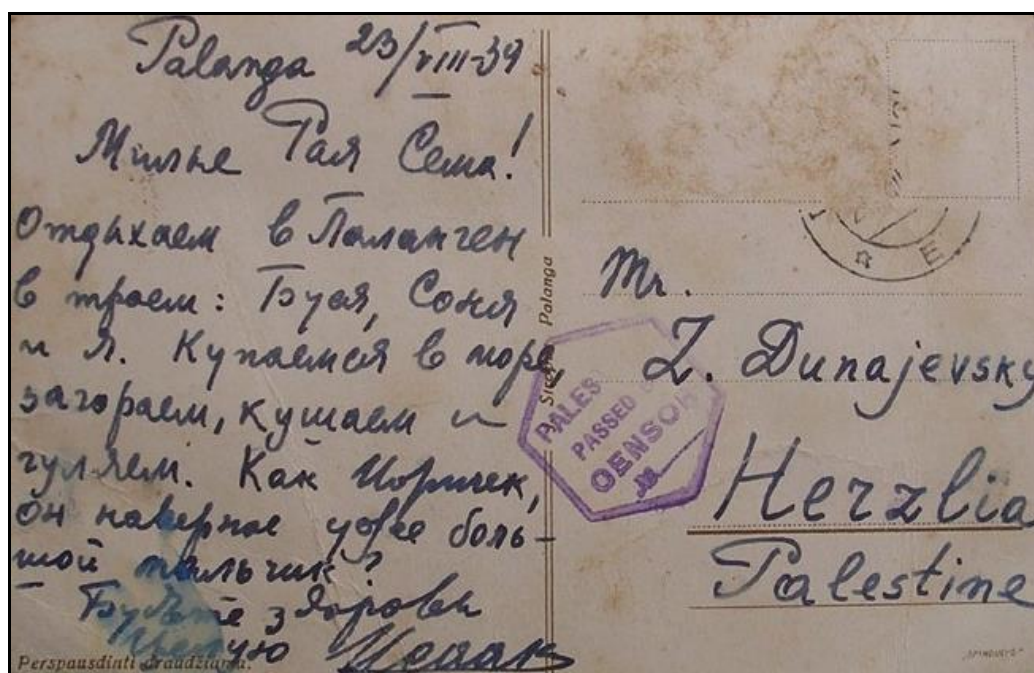 Palanga 23/VIII-39
Милые Рая Сема!
Отдыхаем в Паланген
в троем: Буся, Соня
и Я. Купаемся в море,
загораем, кушаем и
гуляем. Как Иоричек,
он наверное уже боль-
шой мальчик?
Будьте здоровы
Целую Исаак
Perspausdinti draudžiama.
Palanga
PALES
PASSED
CENSOR
E
Mr.
Z. Dunajevsky
Herzlia
Palestine